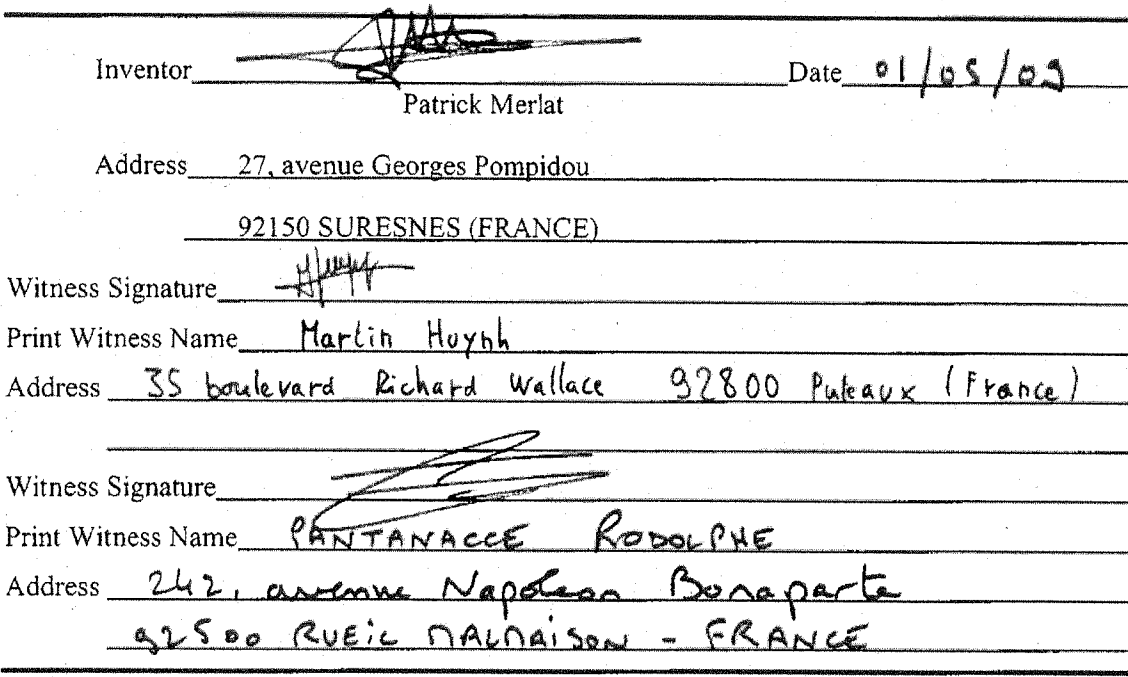 Inventor Date 01/05/09
Patrick Merlat
Address 27, avenue Georges Pompidou
92150 SURESNES (FRANCE)
Witness Signature
Print Witness Name Martin Huynh
Address 35 boulevard Richard Wallace 92800 Puteaux (France)
Witness Signature
Print Witness Name PANTANACCE RODOLPHE
Address 242, avenue Napoleon Bonaparte
92500 RUEIL MALMAISON - FRANCE